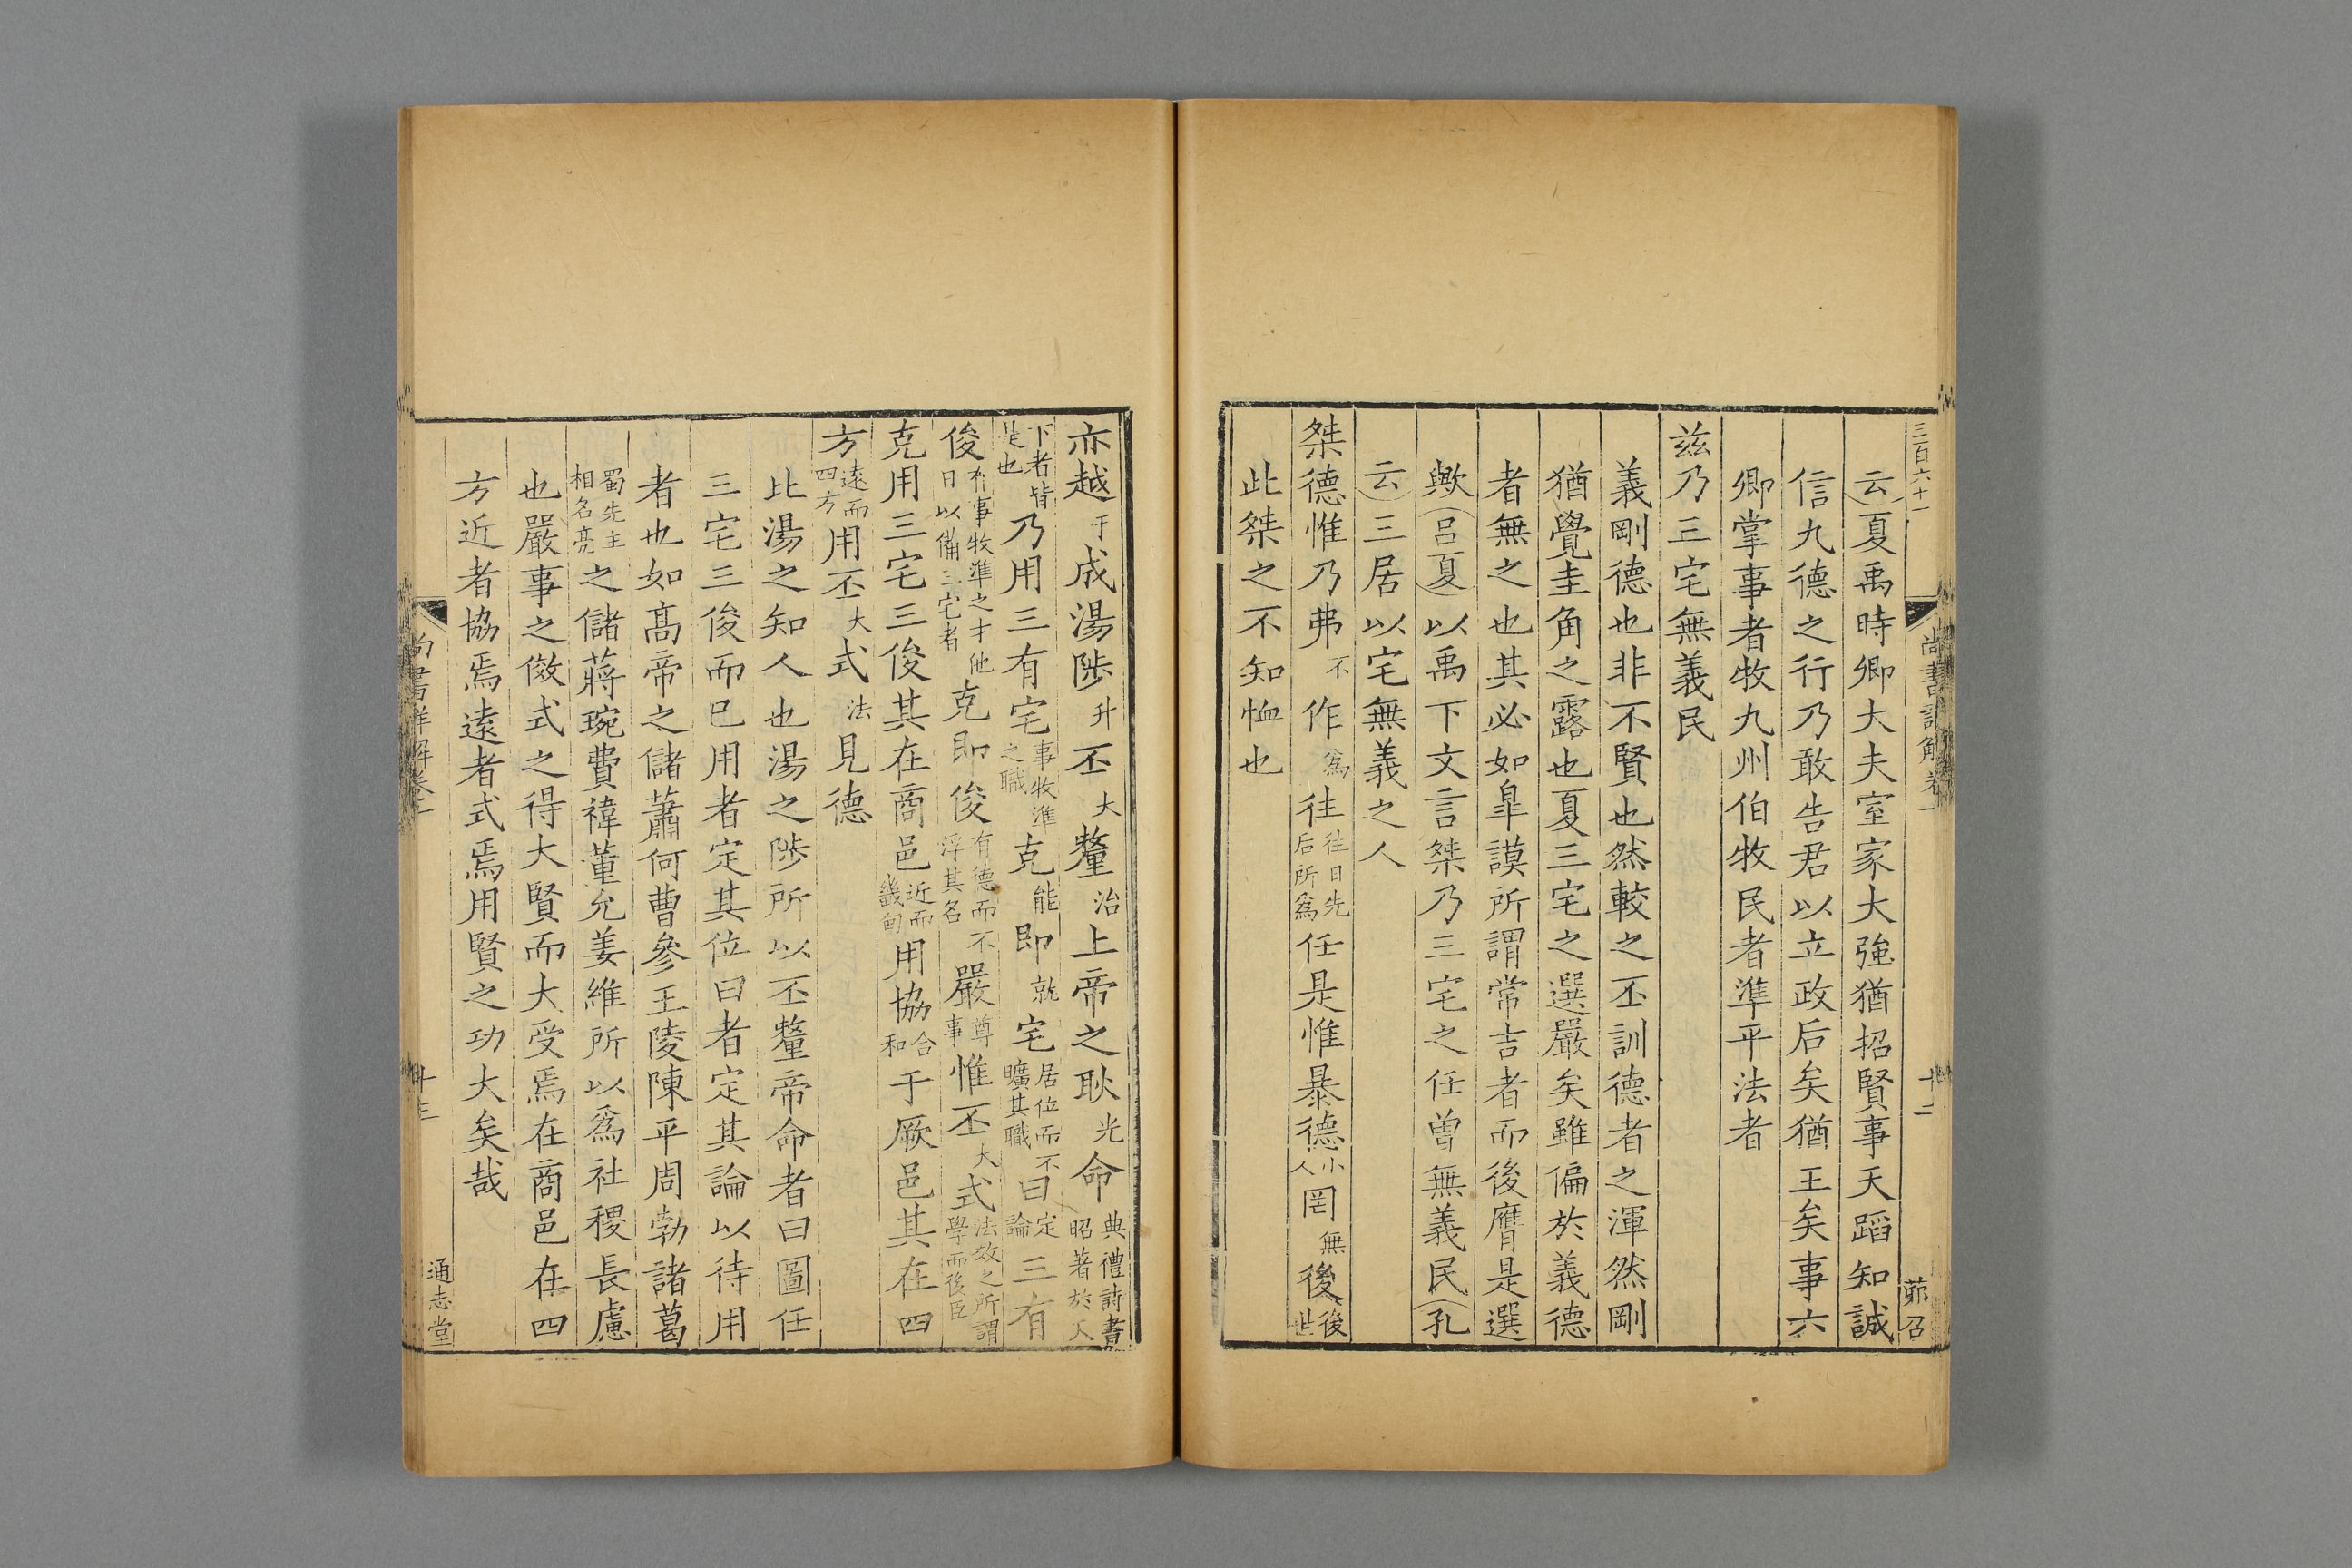 三百六十一
云夏禹時卿大夫室家大強猶招賢事天蹈知誠
信九德之行乃敢告君以立政后矣猶王矣事六
卿掌事者牧九州伯牧民者準平法者
茲乃三宅無義民
義剛德也非不賢也然較之丕訓德者之渾然剛
猶覺圭角之露也夏三宅之選嚴矣雖偏於義德
者無之也其必如臯謨所謂常吉者而後膺是選
歟吕夏以禹下文言桀乃三宅之任曾無義民孔
云三居以宅無義之人
桀德惟乃弗不作爲往往日先后所爲任是惟暴德小人罔無後後世
此桀之不知恤也
亦越于成湯陟升丕大釐治上帝之耿光命典禮詩書昭著於天
下者皆是也乃用三有宅事牧準之職克能即就宅居位而不曠其職曰定論三有
俊有事牧準之才他日以備三宅者克即俊有德而不浮其名嚴尊事惟丕大式法效之所謂學而後臣
克用三宅三俊其在商邑近而畿甸用協合和于厥邑其在四
方遠而四方用丕大式法見德
此湯之知人也湯之陟所以丕釐帝命者曰圖任
三宅三俊而已用者定其位曰者定其論以待用
者也如髙帝之儲蕭何曹參王陵陳平周勃諸葛
蜀先主相名亮之儲蔣琬費禕董允姜維所以爲社稷長慮
也嚴事之傚式之得大賢而大受焉在商邑在四
方近者協焉遠者式焉用賢之功大矣哉
通志堂